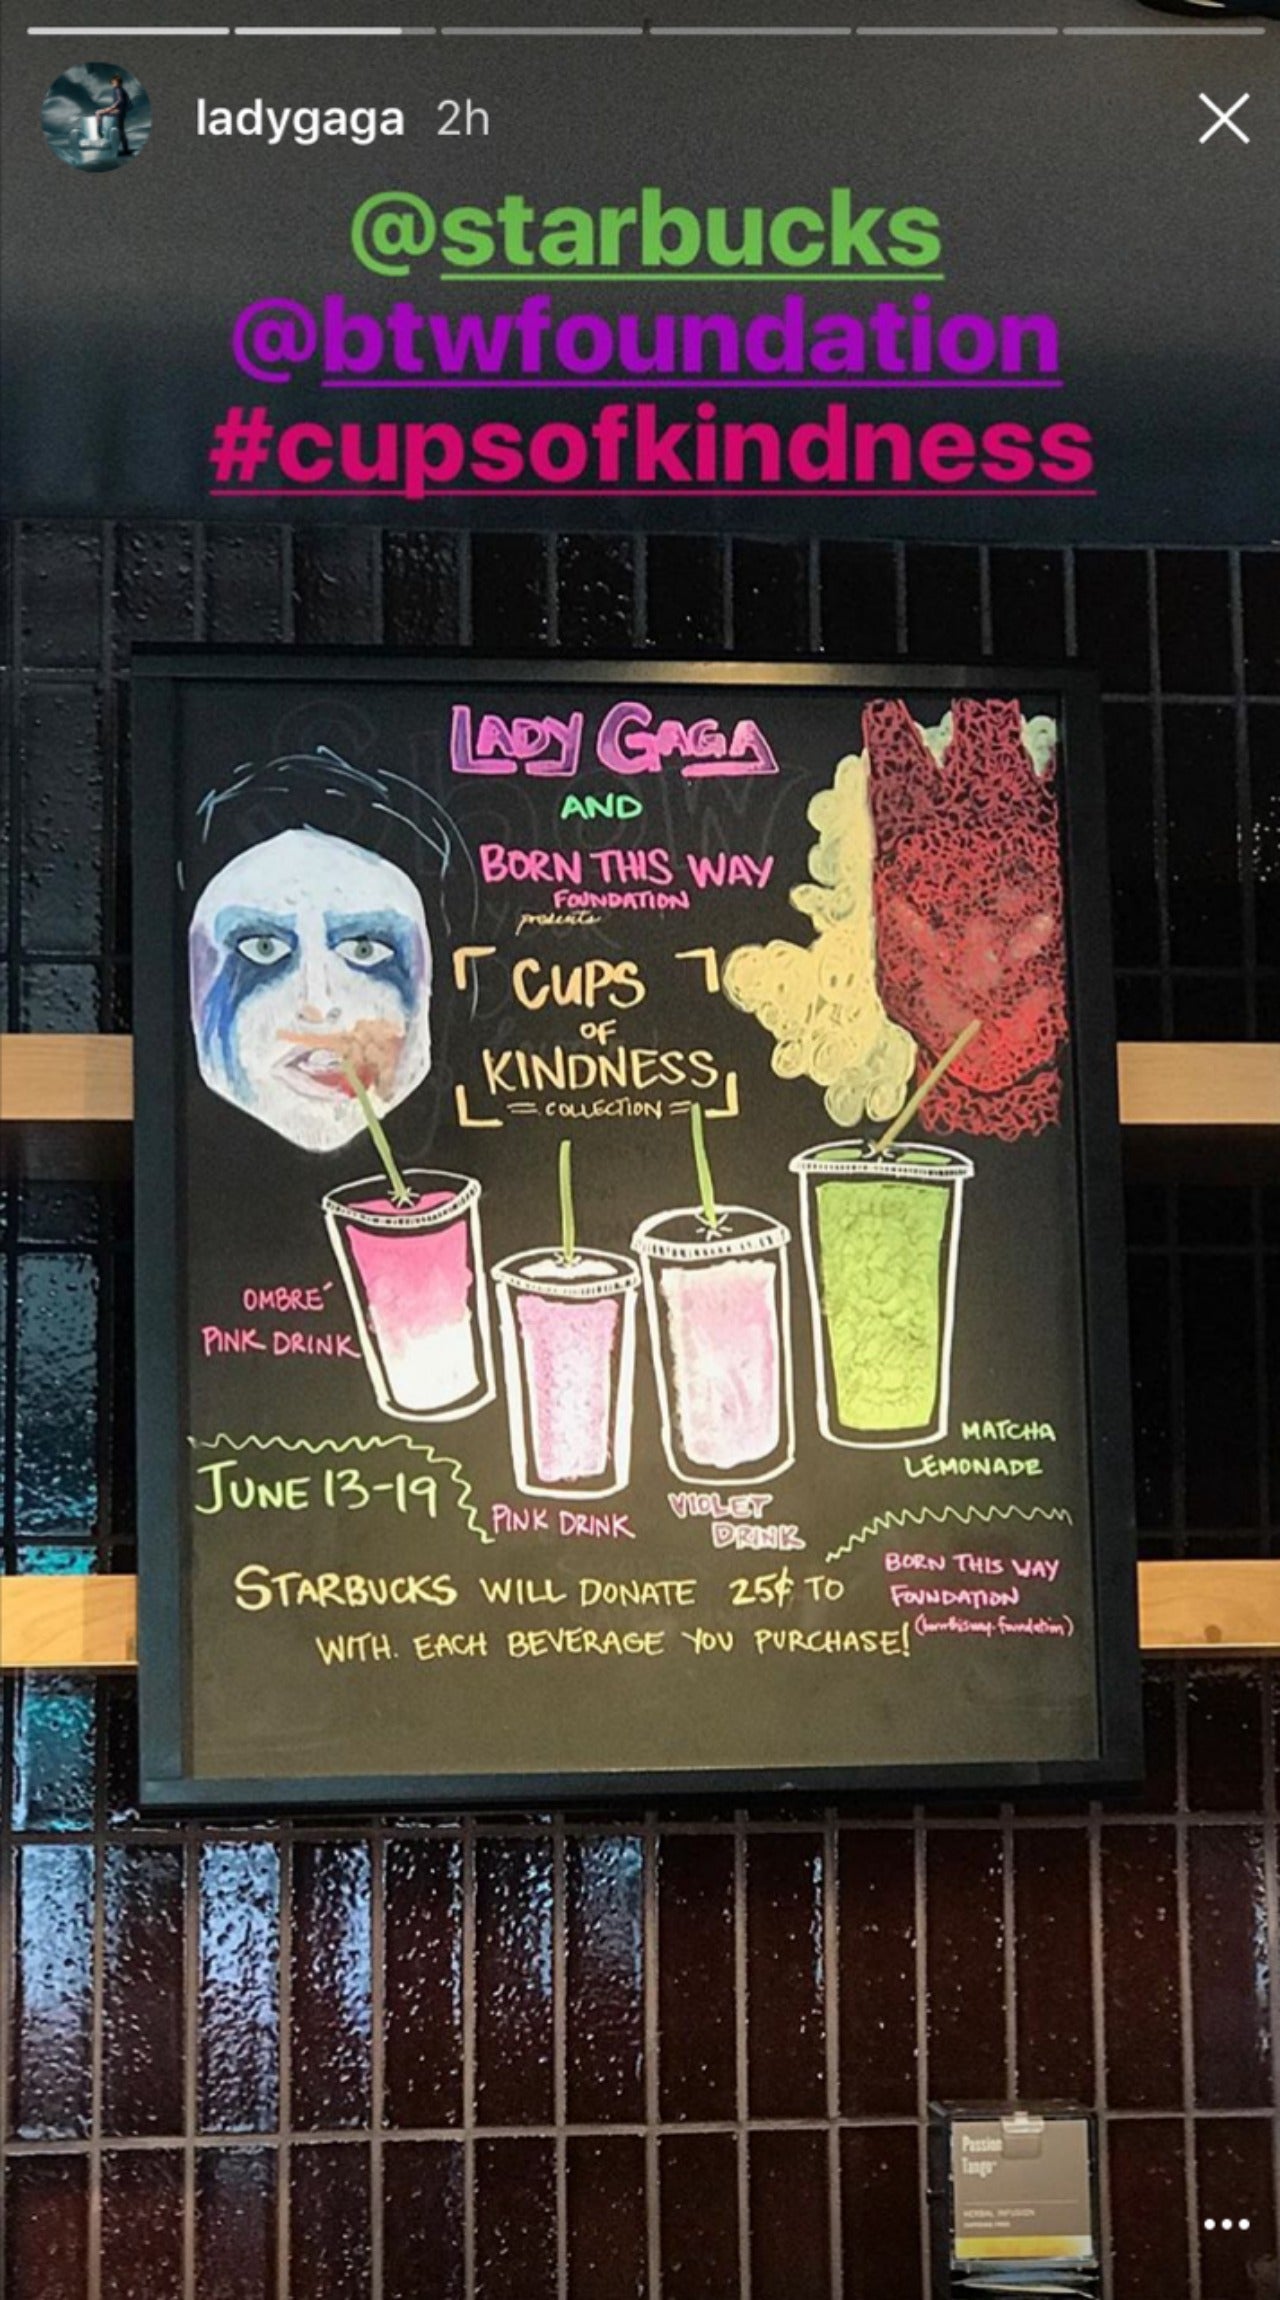 ladygaga 2h
@starbucks
@btwfoundation
#cupsofkindness
LADY GAGA
AND
BORN THIS WAY
FOUNDATION
presents
CUPS
OF
KINDNESS
COLLECTION
OMBRÉ
PINK DRINK
MATCHA
LEMONADE
JUNE 13-19
PINK DRINK
VIOLET
DRINK
STARBUCKS WILL DONATE 25¢ TO
BORN THIS WAY
FOUNDATION
(bornthisway.foundation)
WITH EACH BEVERAGE YOU PURCHASE!
Passion
Tango
HERBAL INFUSION